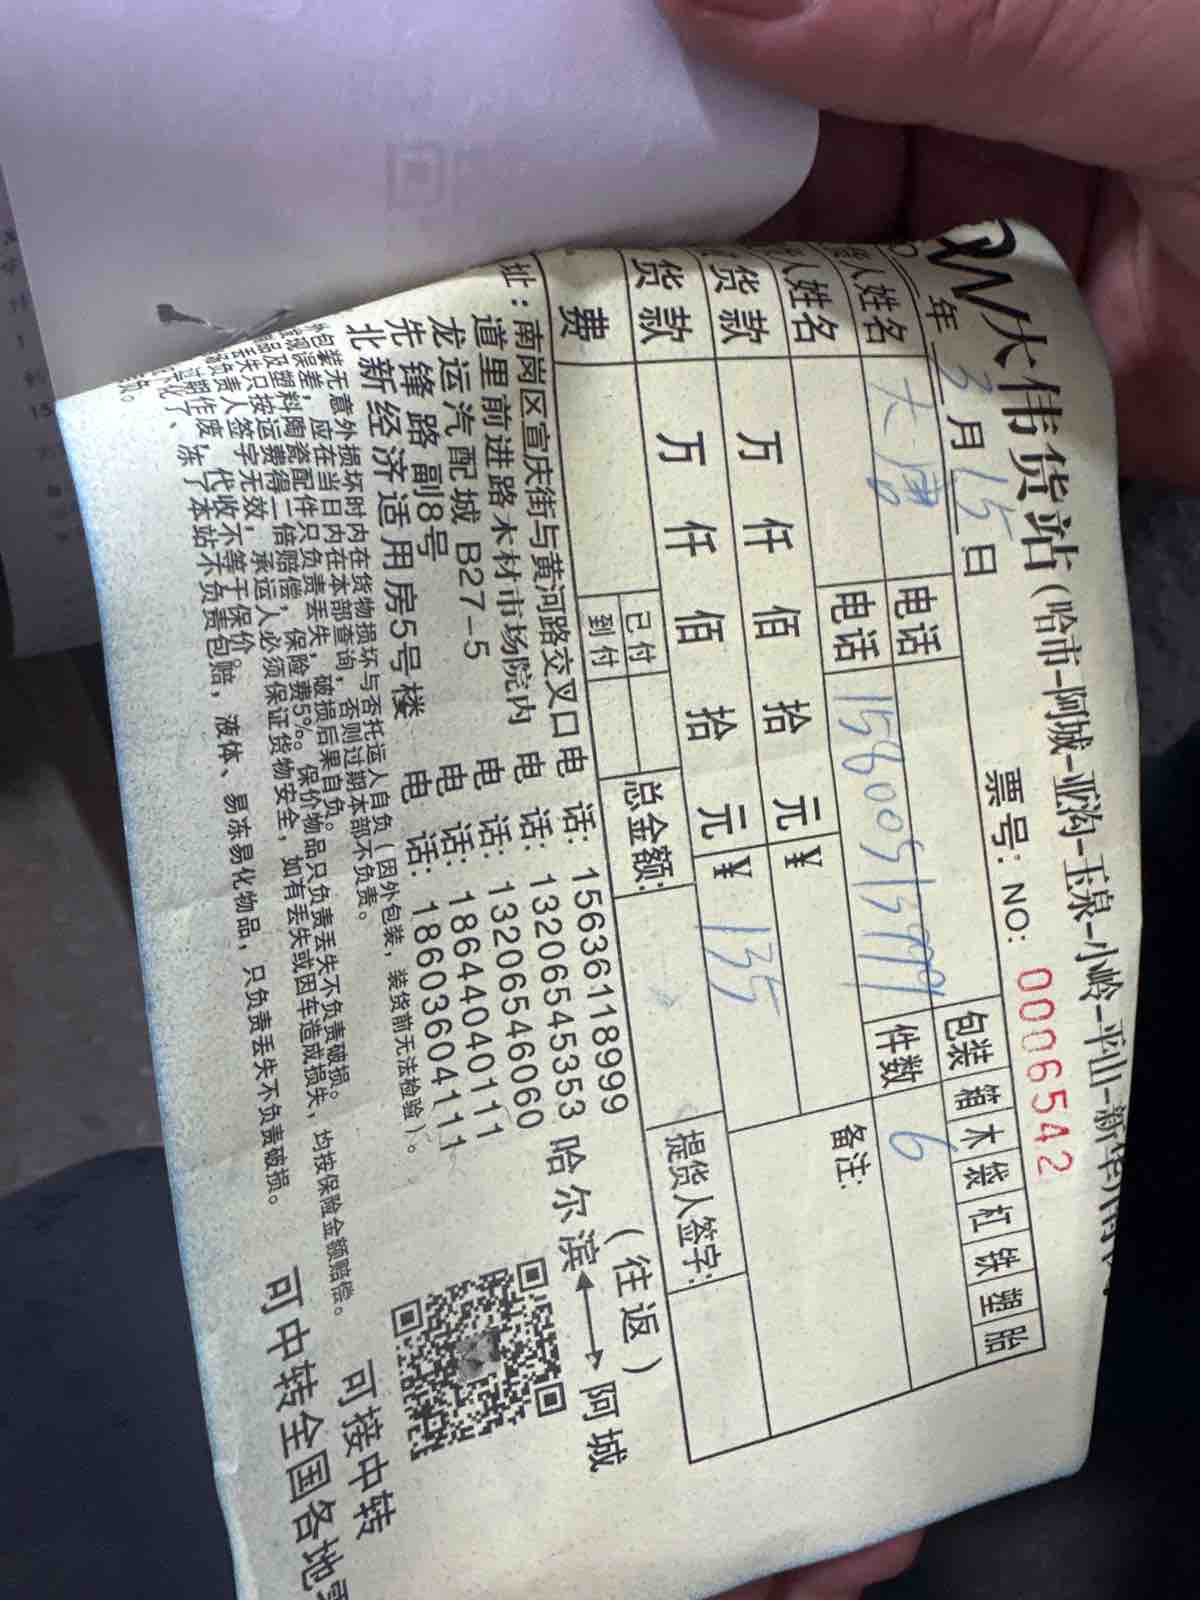 大伟货站（哈市-阿城-亚沟-玉泉-小岭-平山-新华
年 3 月 15 日 票号：NO: 0006542
人姓名 电话 包装 箱 木 袋 杠 铁 塑 胎
人姓名 电话 件数 6
货款 万 仟 佰 拾 元 ¥ 备注:
货款 万 仟 佰 拾 元 ¥ 135
费 已付 到付 总金额: 提货人签字:
址：南岗区宣庆街与黄河路交叉口 电 话：15636118999 （往返）
道里前进路木材市场院内 电 话：13206545353 哈尔滨 阿城
龙运汽配城 B27-5 电 话：13206546060
先锋路副8号 电 话：18644040111
北新经济适用房5号楼 电 话：18603604111
外包装无意外损坏时内在货物损坏与否托运人自负（因外包装，装货前无法检验）。
误差，应在当日内在本部查询，否则过期本部不负责。
品及塑料陶瓷配件只负责丢失，破损后果自负。
丢失只按运费得一倍赔偿，保险费5‰。保价物品只负责丢失不负责破损。
负责人签字无效，承运人必须保证货物安全，如有丢失或因车造成损失，均按保险金额赔偿。
作废，代收不等于保价。
冻了本站不负责包赔，液体、易冻易化物品，只负责丢失不负责破损。
可接中转
可中转全国各地